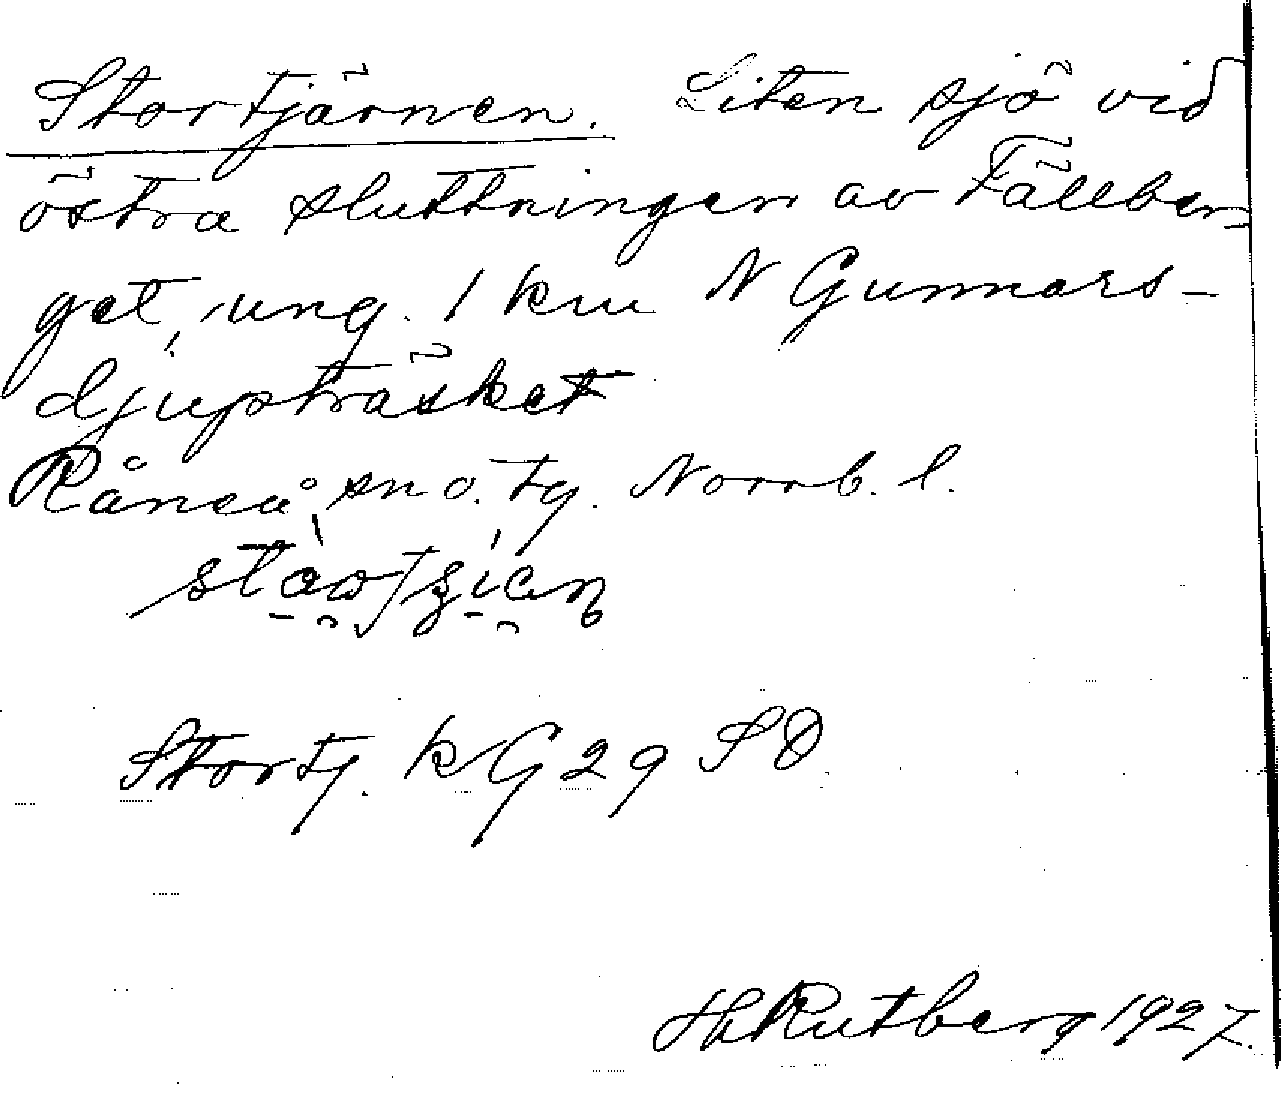 Stortjärnen. Liten sjö vid
östra sluttningen av Fällber-
get, ung. 1 km N Gunnars-
djupträsket
Råneå sn o. tg. Norrb. l.
Stortj. kG 29 SO
H Rutberg 1927.